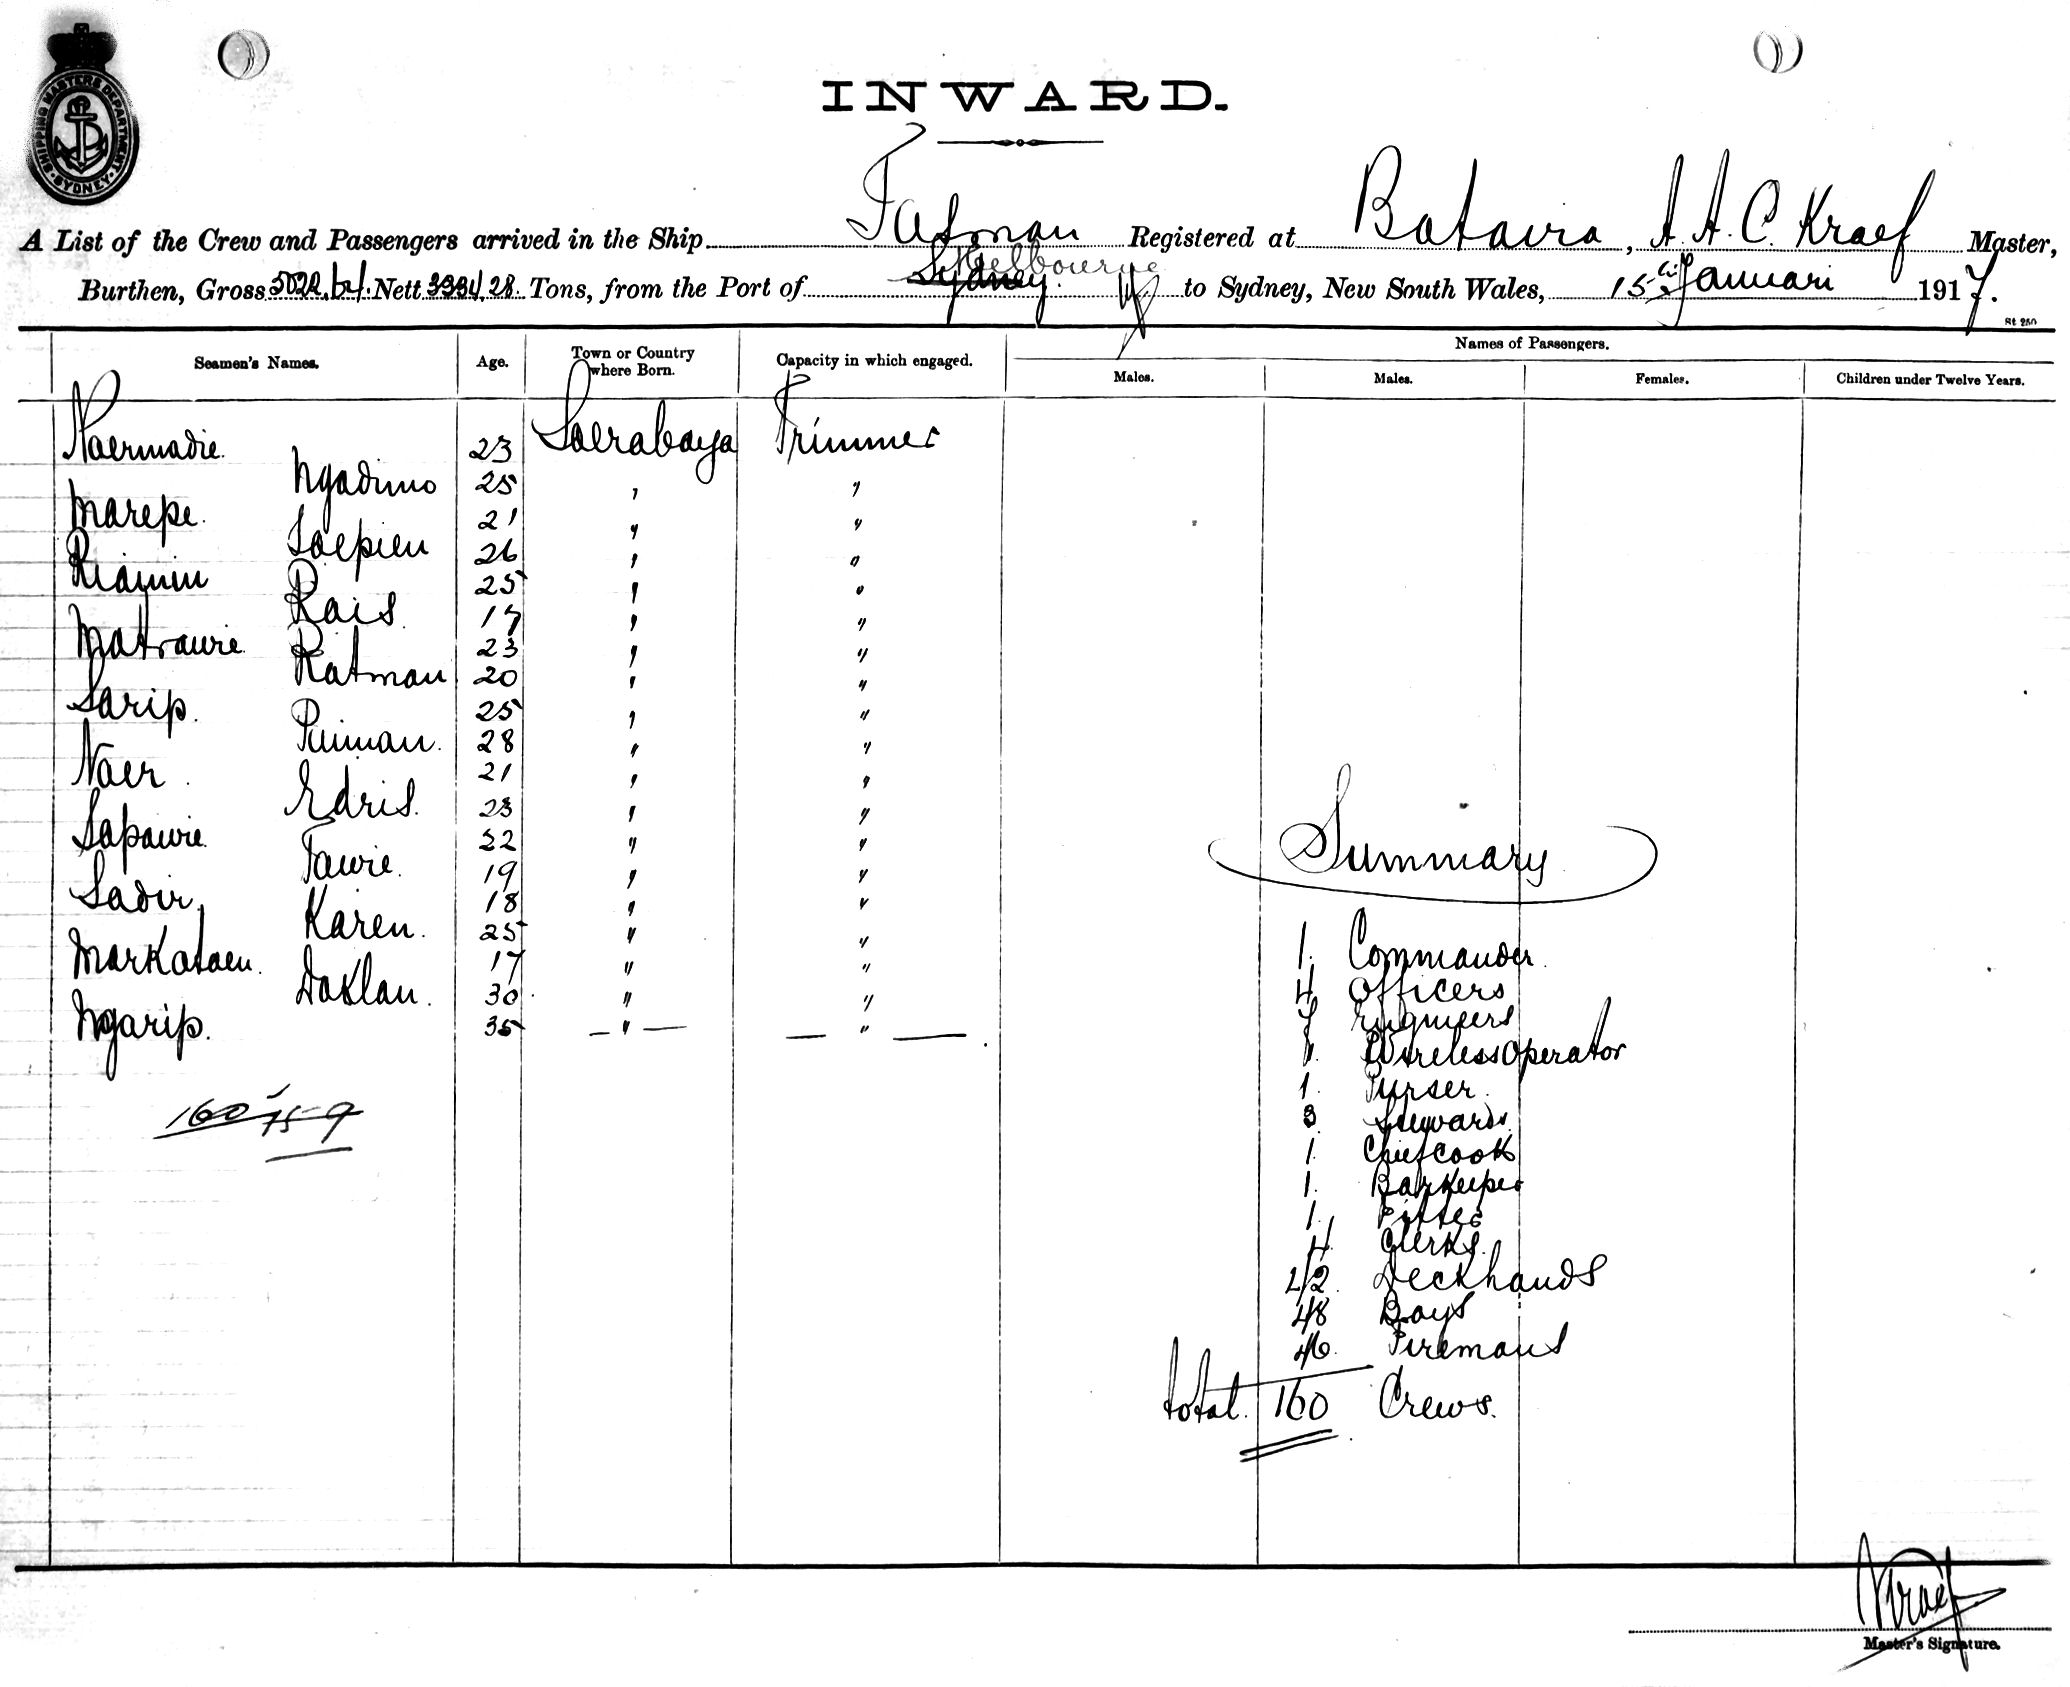 SHIPPING MASTERS DEPARTMENT SYDNEY
INWARD.
A List of the Crew and Passengers arrived in the Ship Tasman Registered at Batavia, A. A. C. Kraef Master,
Melbourne
Burthen, Gross Nett 3334,28 Tons, from the Port of Sydney. to Sydney, New South Wales, 15 Januari 1917.
St 250
Seamen's Names. Age. Town or Country where Born. Capacity in which engaged. Names of Passengers.
Males. Males. Females. Children under Twelve Years.
Naermadie. 23 Soerabaya Trimmer
Ngadimo 25 " "
Marepe. 21 " "
Soepien 26 " "
Riamin 25 " "
Rais. 17 " "
Matrawie 23 " "
Ratman 20 " "
Sarip. 25 " "
Puiman. 28 " "
Naer. 21 " "
Edris. 23 " "
Sapawie. 22 " "
Tawie. 19 " "
Sadir. 18 " "
Karen. 25 " "
Markataen. 17 " "
Daklan. 30 " "
Ngarip. 35 — " — — " —
160
Summary
1. Commander.
4 Officers
7 Engineers
1. Wireless Operator
1. Purser.
3. Stewards.
1. Chiefcook
1. Barkeeper
1. Fitter
4 Clerks.
42 Deckhands
48 Boys
46. Firemans
total. 160 Crews.
Kraef
Master's Signature.